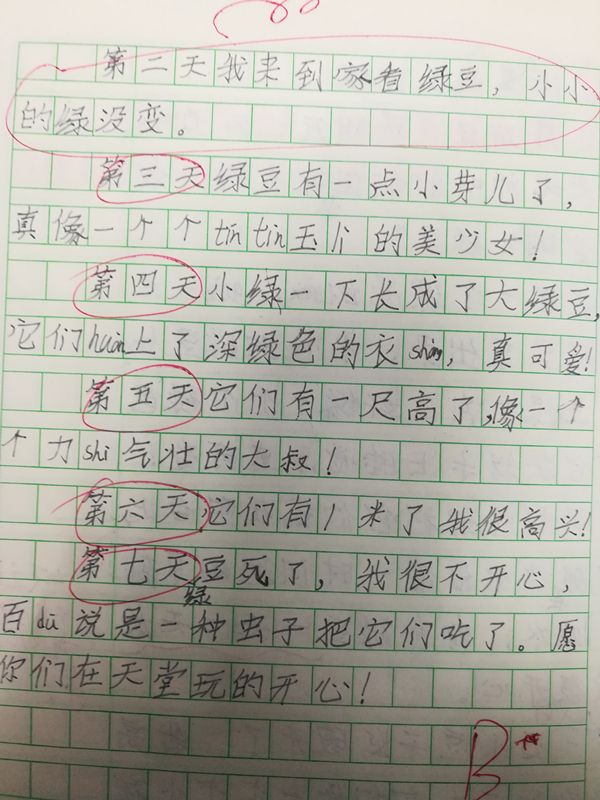 第二天我来到家看绿豆，小小
的绿没变。
第三天绿豆有一点小芽儿了，
真像一个个tíntín玉立的美少女！
第四天小绿一下长成了大绿豆，
它们huàn上了深绿色的衣shang，真可爱！
第五天它们有一尺高了，像一个
个力shì气壮的大叔！
第六天它们有1米了我很高兴！
第七天绿豆死了，我很不开心，
百dū说是一种虫子把它们吃了。愿
你们在天堂玩的开心！
B